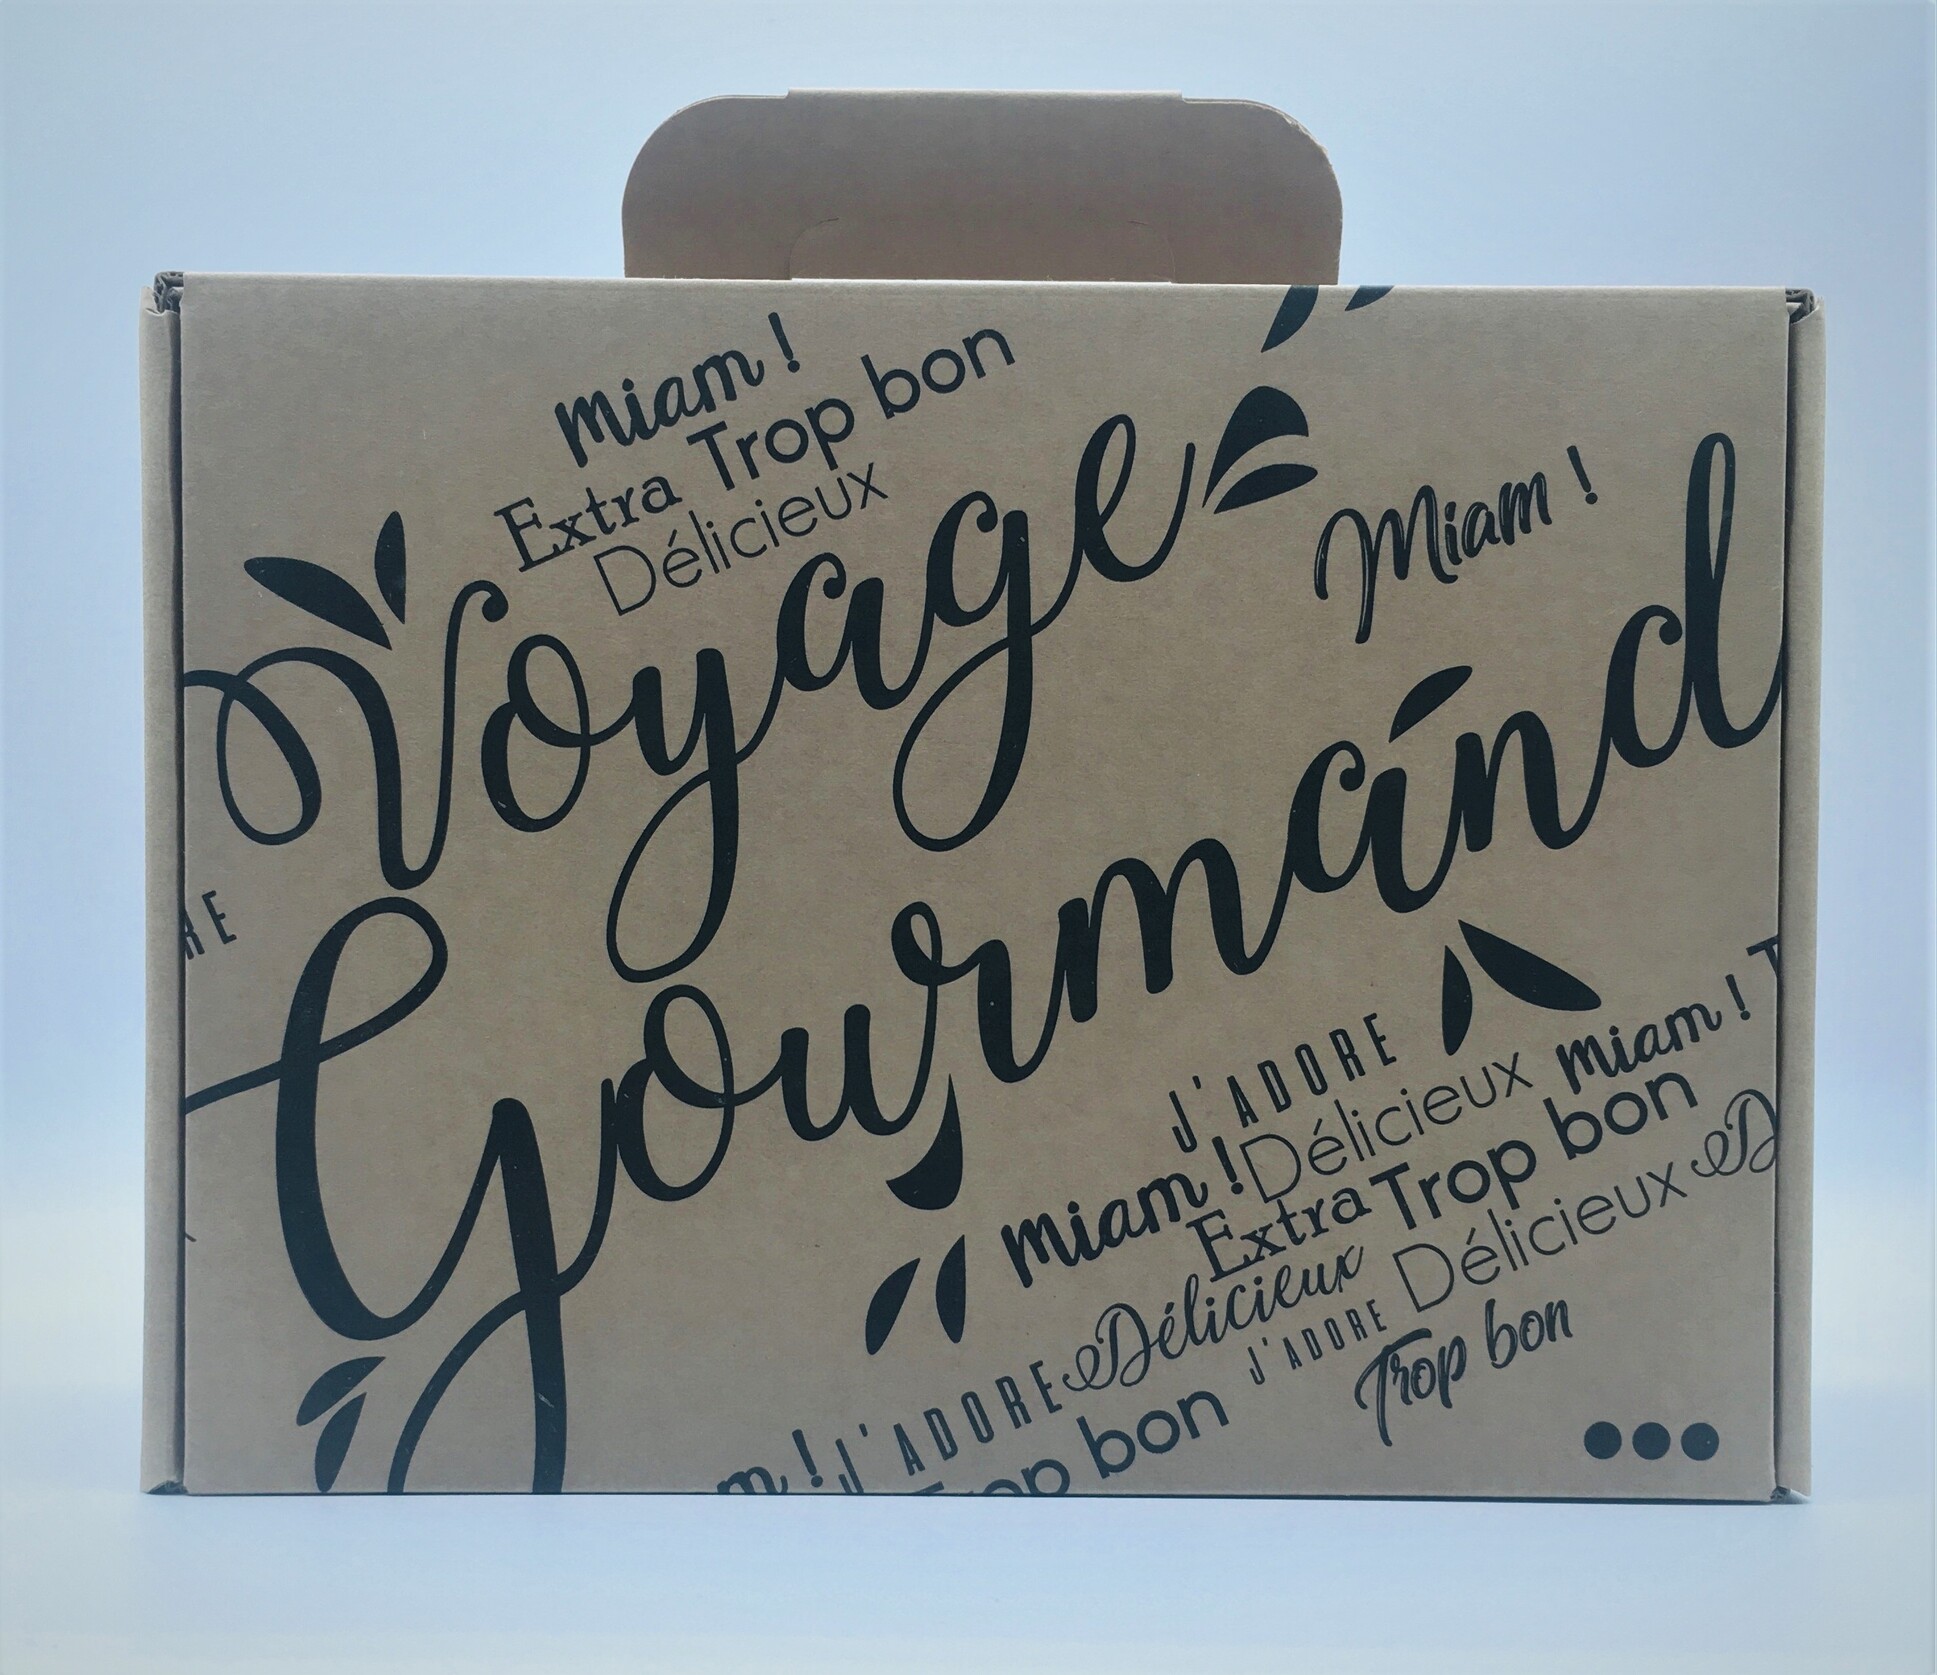 miam !
Extra Trop bon
Délicieux
Voyage
Miam !
Gourmand
RE
J'ADORE
miam ! Délicieux miam ! T
Extra Trop bon
J'ADORE Délicieux J'ADORE Délicieux D
m ! J'ADORE Trop bon Trop bon